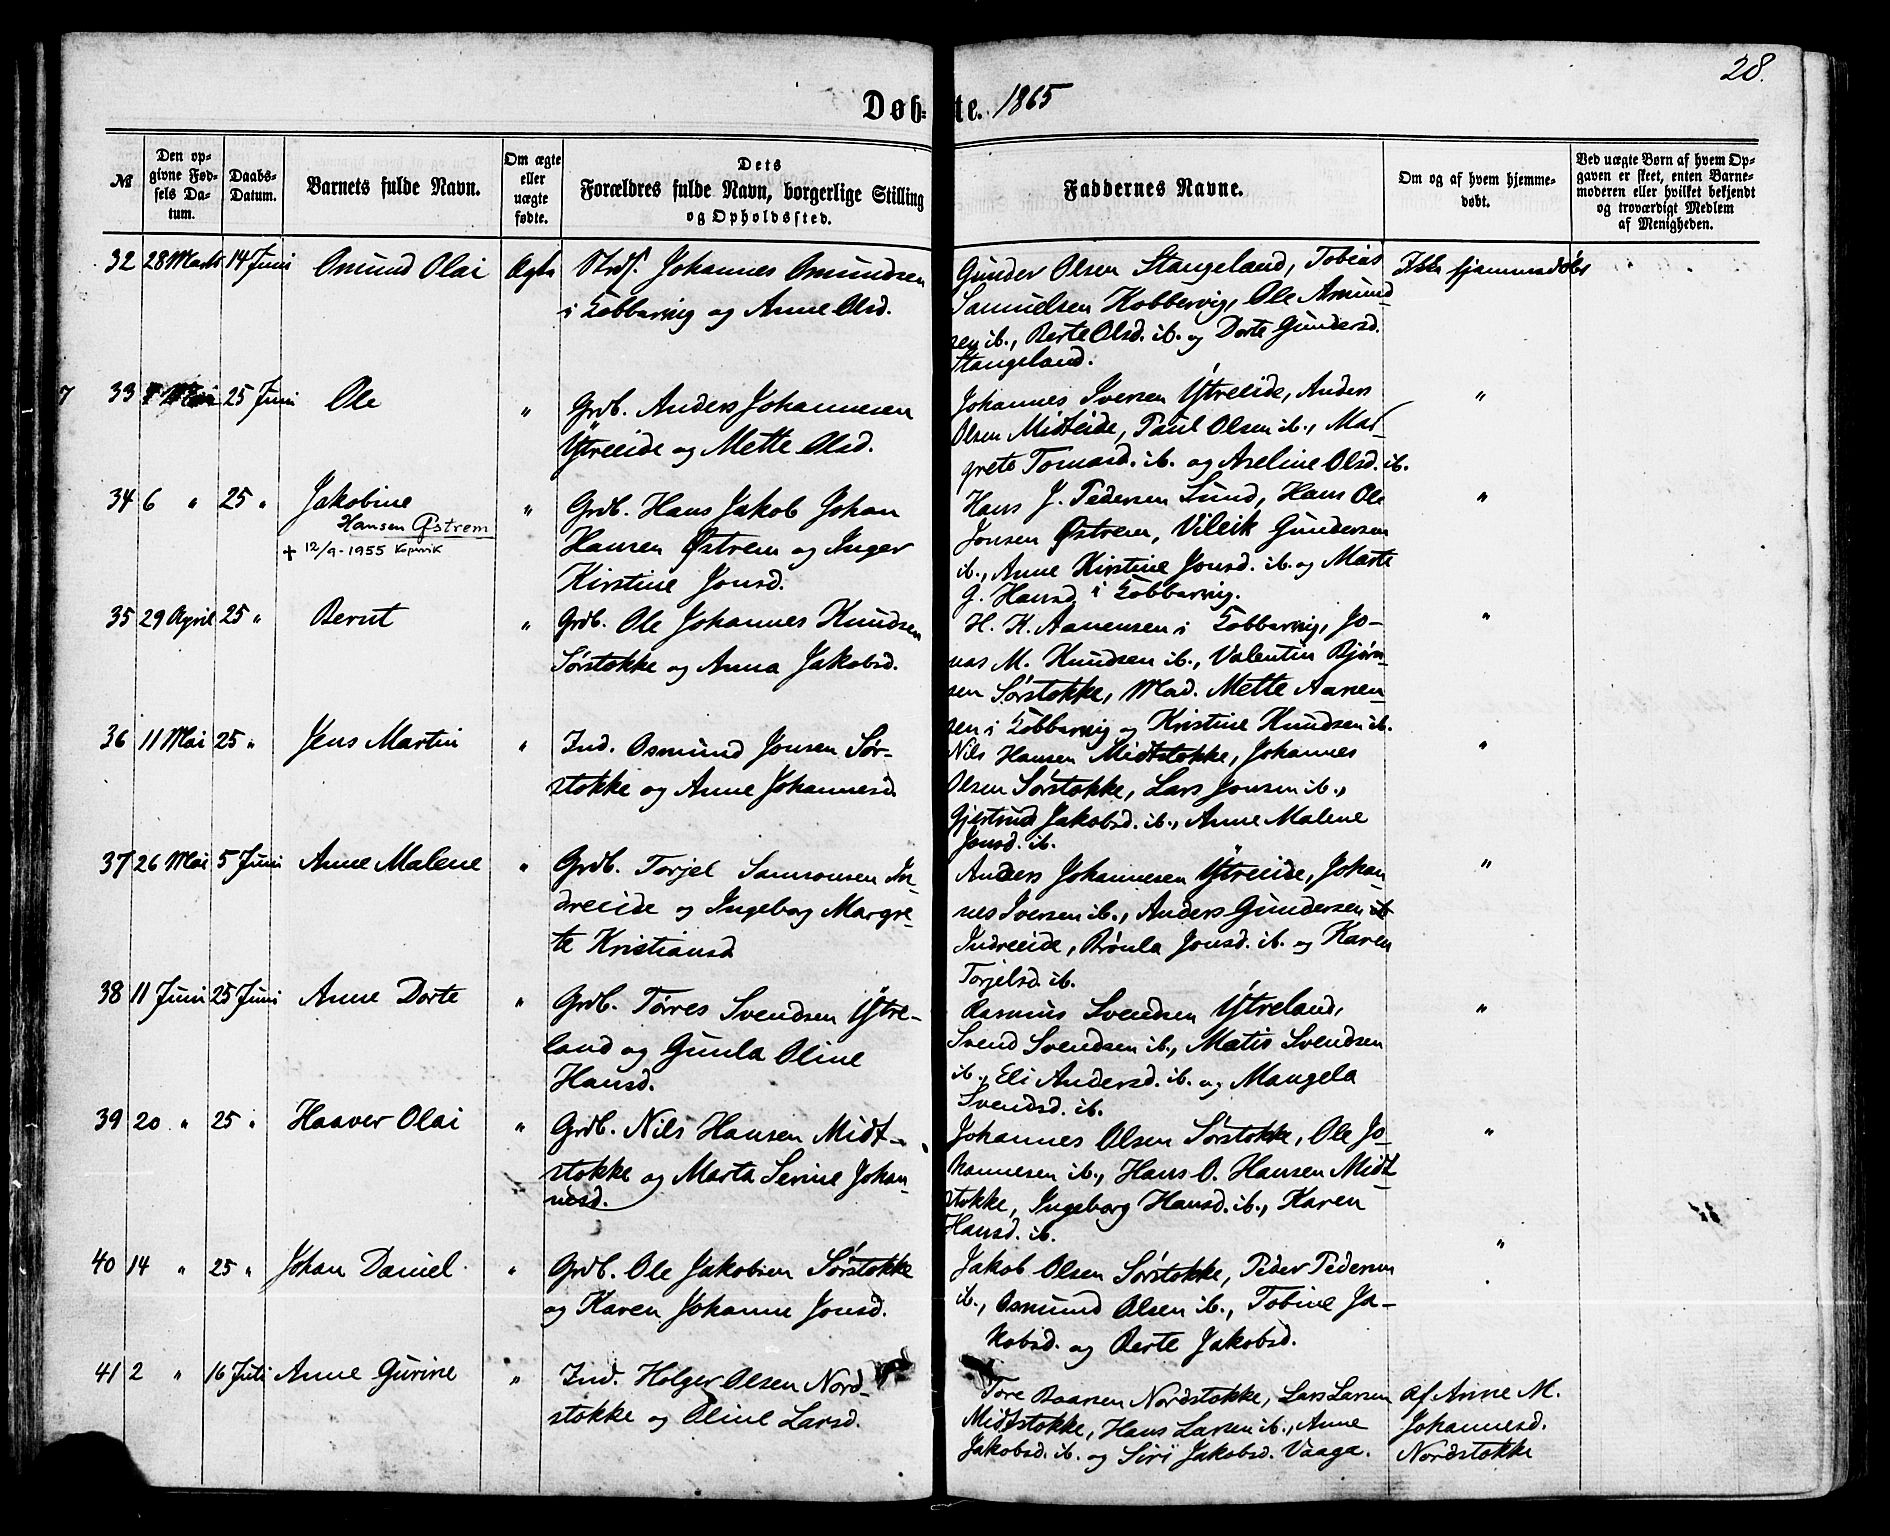 28.
Døbte. 1865
№
Den opgivne Fødsels Datum.
Daabs-Datum.
Barnets fulde Navn.
Om ægte eller uægte fødte.
Dets Forældres fulde Navn, borgerlige Stilling og Opholdssted.
Faddernes Navne.
Om og af hvem hjemmedøbt.
Ved uægte Børn af hvem Opgaven er skeet, enten Barnemoderen eller hvilket bekjendt og troværdigt Medlem af Menigheden.
32 28 Marts 14 Juni Osmund Olai Ægte
Strds. Johannes Osmundsen
i Kobbervig og Anne Olsd.
Gunder Olsen Stangeland, Tobias
Samuelsen Kobbervig, Ole Asmund-
sen ib., Berte Olsd. ib. og Dorte Gundersd.
Stangeland.
Ikke hjemmedøbt
7 33 Mai 25 Juni Ole "
Grdb. Anders Johannesen
Ytreeide og Mette Olsd.
Johannes Iversen Ytreeide, Anders
Olsen Midteide, Paul Olsen ib., Mar-
grete Tomasd. ib. og Aseline Olsd. ib.
"
34 6 " 25 " Jakobine "
Hansen Østrem
✝ 12/9-1955 Kopervik
Grdb. Hans Jakob Johan
Hansen Østrem og Inger
Kirstine Jonsd.
Hans J. Pedersen Lund, Hans Ole
Jonsen Østrem, Vileik Gundersen
ib., Anne Kirstine Jonsd. ib. og Marte
G. Hansd. i Kobbervig.
"
35 29 April 25 " Bernt "
Grdb. Ole Johannes Knudsen
Sørstokke og Anna Jakobsd.
H. K. Aanensen i Kobbervig, Jo-
nas M. Knudsen ib., Valentin Bjørn-
sen Sørstokke, Mad. Mette Aanen-
sen i Kobbervig og Kristine Knudsen ib.
"
36 11 Mai 25 " Jens Martin "
Ind. Osmund Jonsen Sør-
stokke og Anne Johannesd.
Nils Hansen Midtstokke, Johannes
Olsen Sørstokke, Lars Jonsen ib.,
Gjertrud Jakobsd. ib., Anne Malene
Jonsd. ib.
"
37 26 Mai 5 Juni Anne Malene "
Grdb. Torjel Samsonsen In-
dreeide og Ingeborg Margre-
te Kristiansd.
Anders Johannesen Ytreeide, Johan-
nes Iversen ib., Anders Gundersen ib
Indreeide, Brønla Jonsd. ib. og Karen
Torjelsd. ib.
"
38 11 Juni 25 Juni Anne Dorte "
Grdb. Tørres Svendsen Ytre-
land og Gunla Oline
Hansd.
Rasmus Svendsen Ytreland,
Svend Svendsen ib., Matis Svendsen
ib., Eli Andersd. ib. og Mangela
Svendsd. ib.
"
39 20 " 25 " Haaver Olai "
Grdb. Nils Hansen Midt-
stokke og Marta Serine Johan-
nesd.
Johannes Olsen Sørstokke, Ole Jo-
hannesen ib., Hans O. Hansen Midt-
stokke, Ingeborg Hansd. ib., Karen
Hansd. ib.
"
40 14 " 25 " Johan Daniel "
Grdb. Ole Jakobsen Sørstokke
og Karen Johanne Jonsd.
Jakob Olsen Sørstokke, Peder Pedersen
ib., Osmund Olsen ib., Tobine Ja-
kobsd. og Berte Jakobsd.
"
41 2 " 16 Juli Anne Gurine "
Ind. Holger Olsen Nord-
stokke og Oline Larsd.
Tore Baarsen Nordstokke, Lars Larsen
Midtstokke, Hans Larsen ib., Anne
Jakobsd. ib. og Siri Jakobsd. Vaaga.
af Anne M.
Johannesd.
Nordstokke